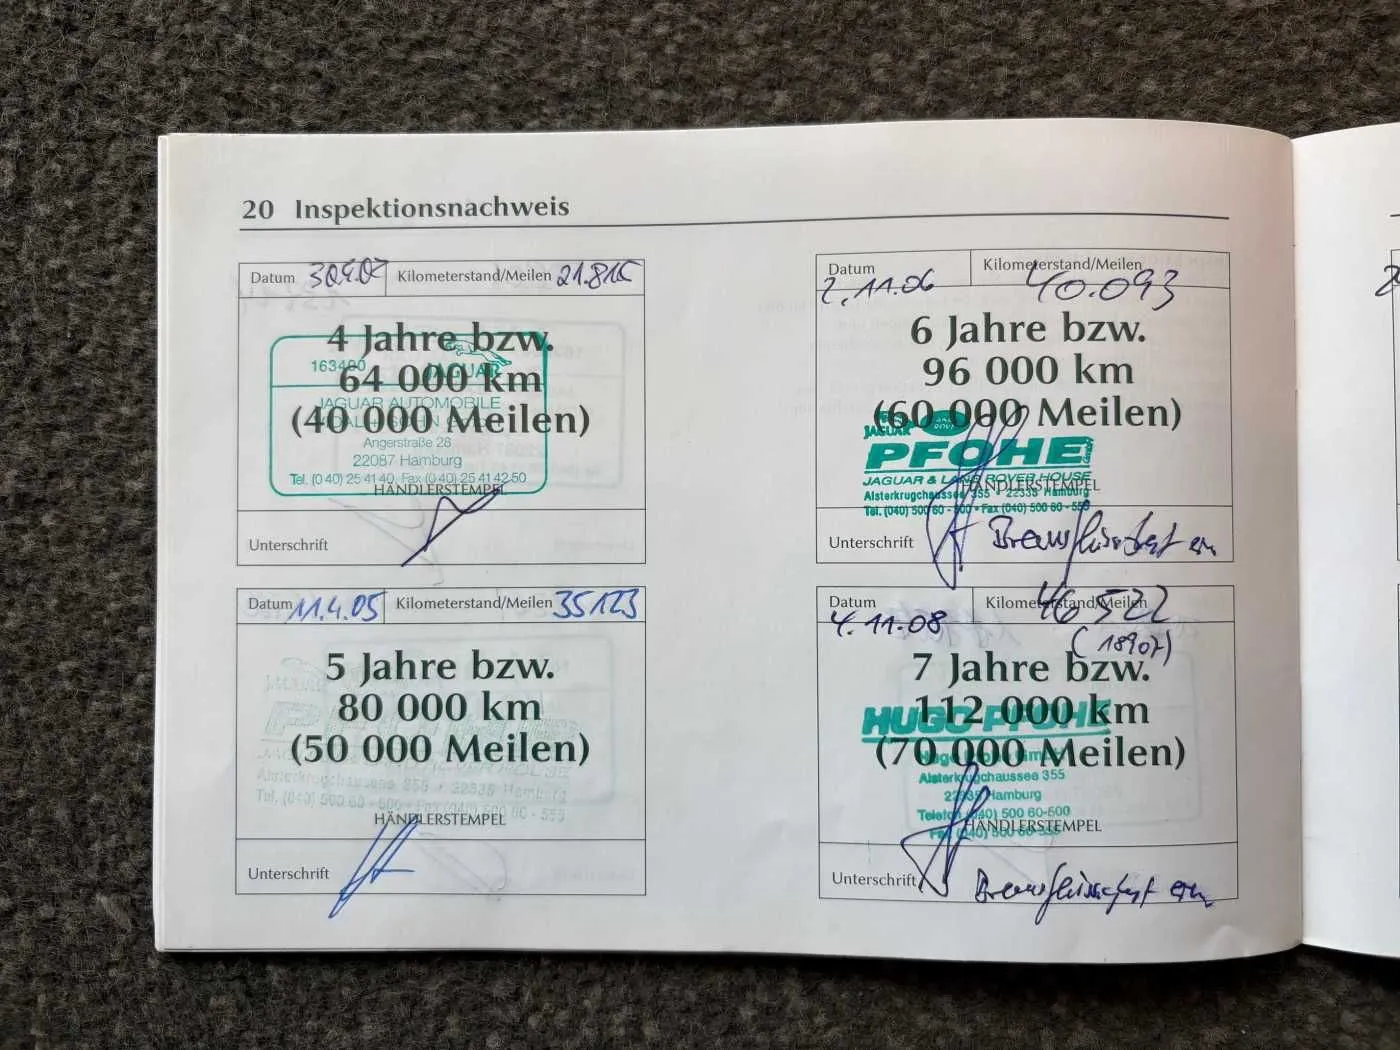 20 Inspektionsnachweis
Datum Kilometerstand/Meilen 21.815
4 Jahre bzw.
64 000 km
(40 000 Meilen)
163400 JAGUAR
JAGUAR AUTOMOBILE
Angerstraße 28
22087 Hamburg
Tel. (0 40) 25 41 40, Fax (0 40) 25 41 42 50
HÄNDLERSTEMPEL
Unterschrift
Datum 11.4.05 Kilometerstand/Meilen 35123
5 Jahre bzw.
80 000 km
(50 000 Meilen)
Alsterkrugchaussee 355 · 22335 Hamburg
Tel. (040) 500 60 - 500 · Fax (040) 500 60 - 555
HÄNDLERSTEMPEL
Unterschrift
Datum 2.11.06 Kilometerstand/Meilen 40.093
6 Jahre bzw.
96 000 km
(60 000 Meilen)
JAGUAR
PFOHE GmbH
JAGUAR & LAND ROVER HOUSE
Alsterkrugchaussee 355 · 22335 Hamburg
Tel. (040) 500 60 - 500 · Fax (040) 500 60 - 555
HÄNDLERSTEMPEL
Unterschrift Bremsflüssigkeit ern
Datum 4.11.08 Kilometerstand/Meilen 46522
(18907)
7 Jahre bzw.
112 000 km
(70 000 Meilen)
HUGO PFOHE
Hugo Pfohe GmbH
Alsterkrugchaussee 355
22335 Hamburg
Telefon (040) 500 60-500
Fax (040) 500 60-555
HÄNDLERSTEMPEL
Unterschrift Bremsflüssigkeit ern